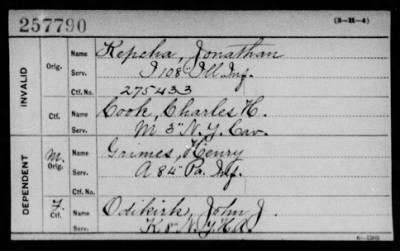 257790 (3-H-4)
INVALID
Orig. Name Kepcha, Jonathan
Serv. I 108" Ill Inf.
Ctf. No. 275433
Ctf. Name Cook, Charles H.
Serv. M 3" N.Y. Cav.
DEPENDENT
M. Orig. Name Grimes, Henry
Serv. A 84" Pa. Inf.
Ctf. No.
F. Ctf. Name Odikirk, John J.
Serv. K 8" N.Y.H.A.